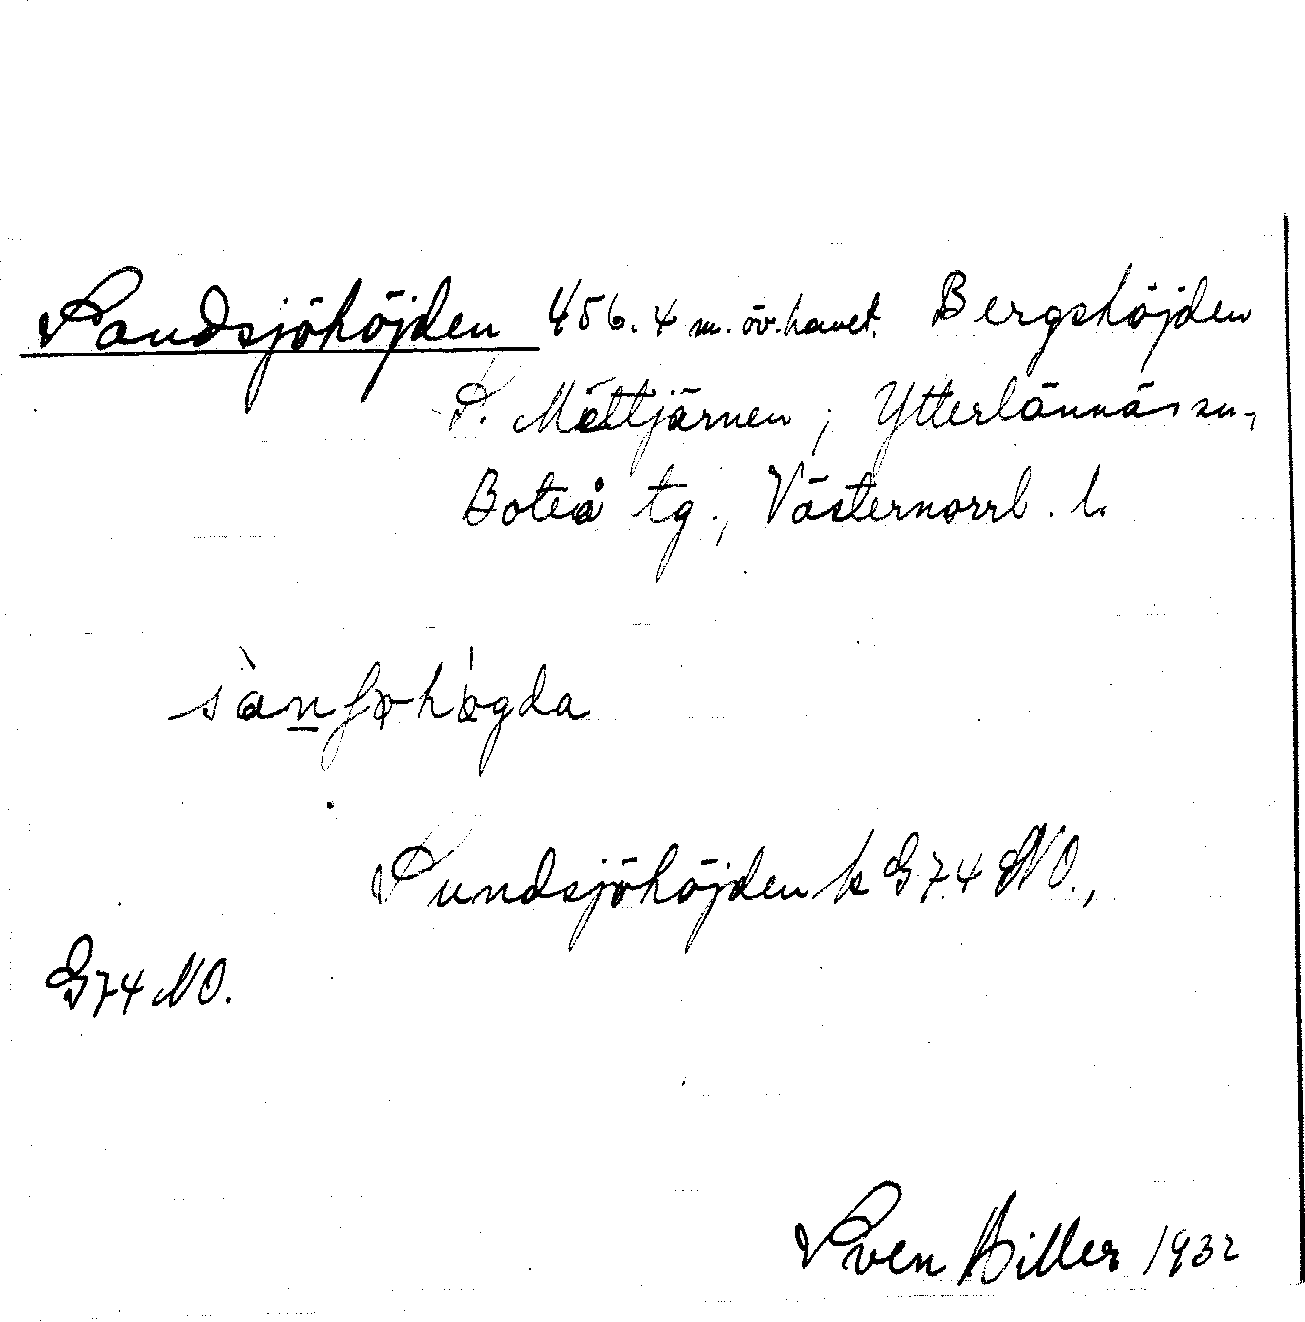 Sandsjöhöjden 456.4 m. öv. havet. Bergshöjden
S. Mettjärnen, Ytterlännäs sn.,
Boteå tg., Västernorrl. l.
Sundsjöhöjden k G74 NO.,
G74 NO.
Sven Hiller 1932